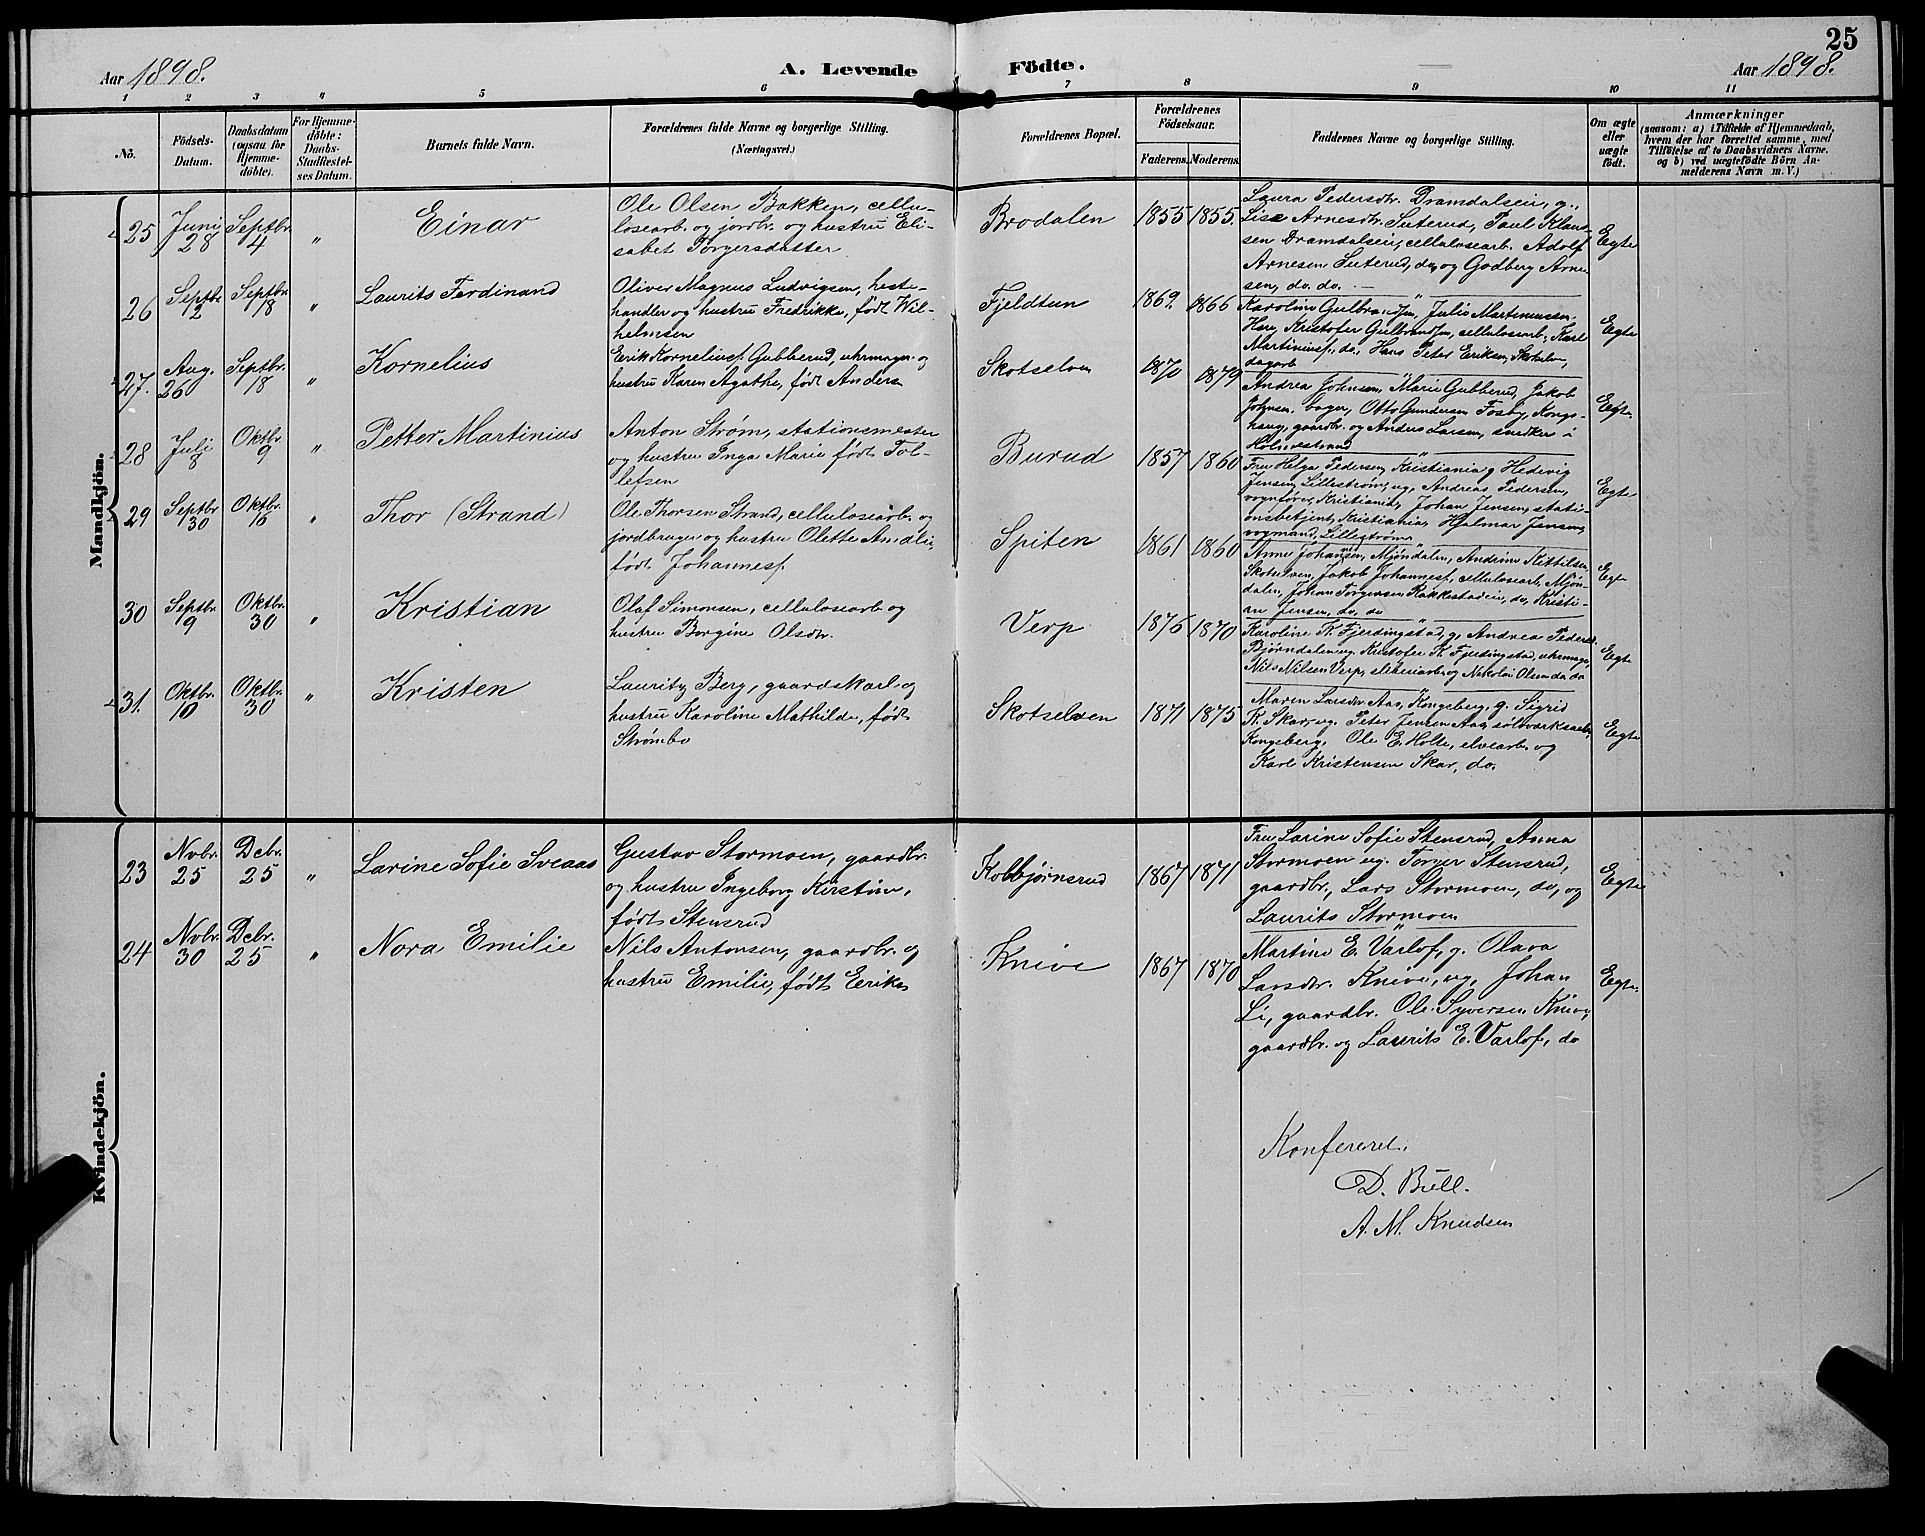 25
Aar 1898.
A. Levende Födte.
Aar 1898.
1 2 3 4 5 6 7 8 9 10 11
No.
Födsels-
Datum.
Daabsdatum
(ogsaa for
Hjemme-
döbte).
For Hjemme-
döbte:
Daabs-
Stadfæstel-
ses Datum.
Barnets fulde Navn.
Forældrenes fulde Navne og borgerlige Stilling.
(Næringsvei.)
Forældrenes Bopæl.
Forældrenes
Födselsaar.
Faderens. Moderens.
Faddernes Navne og borgerlige Stilling.
Om ægte
eller
uægte
födt.
Anmærkninger
(saasom: a) i Tilfælde af Hjemmedaab,
hvem der har forrettet samme, med
Tilföielse af to Daabsvidners Navne,
og b) ved uægtefödte Börn An-
melderens Navn m. V.)
Mandkjön.
25
Juni
28
Septbr.
4
"
Einar
Ole Olsen Bakken, cellu-
losearb. og jordbr. og hustru Eli-
sabet Torgersdatter
Brodalen
1855 1855.
Laura Pedersdtr. Dramdalseie, g.,
Lise Arnesdtr. Suterud, Paul Klau-
sen Dramdalseie, cellulosearb. Adolf
Arnesen Suterud, do, og Godberg Arne-
sen, do. do.
Egte
26
Septbr.
2
Septbr.
18
"
Laurits Ferdinand
Oliver Magnus Ludvigsen, heste-
handler og hustru Fredrikke, født Wil-
helmsen
Fjeldtun
1869 1866
Karoline Gulbrands., Julie Martinussen
Kristofer Gulbrands., cellulosearb., Karl
Martinius., do., Hans Peter Eriksen, Skotselv.,
dagarb
Egte
27.
Aug.
26
Septbr.
18
"
Kornelius
Erik Kornelius. Gubberud, uhrmager og
hustru Karen Agathe, født Anders
Skotselven
1870 1879
Andrea Johnsen, Marie Gubberud, Jakob
Johnsen, bager, Otto Gundersen Fosby, Kongs-
haug, gaardbr. og Anders Larsen, snedker i
Holmestrand
Egte.
28
Juli
8
Oktbr.
9
"
Petter Martinius
Anton Strøm, stationsmester
og hustru Inga Marie født Tol-
lefsen
Burud
1857 1860
Fru Helga Pedersen, Kristiania g Hedevig
Jensen, Lillestrøm, ug, Andreas Pedersen,
vognfører, Kristiania, Johan Jensen, stati-
onsbetjent, Kristiania, Hjalmar Jensen,
vogmand, Lillestrøm
Egte
29
Septbr.
30
Oktbr.
16
"
Thor (Strand)
Ole Thorsen Strand, cellulosearb. og
jordbruger og hustru Olette Amalie,
født Johannes.
Spiten
1861 1860
Anne Johansen, Mjøndalen, Andrine Kittilsen
Skotselven, Jakob Johannes., cellulosearb. Mjøn-
dalen, Johan Torgersen Rakkestadeie, do, Kristi-
an Jensen, do, do
Egte
30
Septbr.
9
Oktbr.
30
"
Kristian
Olaf Simonsen, cellulosearb. og
hustru Borgine Olsdtr.
Verp
1876 1870
Karoline K. Fjerdingstad, g, Andrea Peders.
Bjørndalen ug. Kristofer K. Fjerdingstad, uhrmager,
Nils Nilsen Verp, sliberiarb. og Nikolai Olsen do do
Egte
31.
Oktbr.
10
Oktbr.
30
"
Kristen
Lauritz Berg, gaardskarl og
hustru Karoline Mathilde, født
Strømbo
Skotselven
1871 1875
Maren Larsdtr Aas, Kongsberg, g. Sigrid
K. Skar, ug. Peter Jensen Aas sølvværksarb,
Kongsberg, Ole E. Holte, elvearb. og
Karl Kristensen Skar, do.
Egte
Kvindekjön.
23
Novbr.
25
Debr.
25
"
Larine Sofie Sveaas
Gustav Stormoen, gaardbr.
og hustru Ingeborg Kirstine,
født Stensrud
Kolbjørnsrud
1867 1871
Fru Larine Sofie Stensrud, Anna
Stormoen ug. Torger Stensrud,
gaardbr., Lars Stormoen, do, og
Laurits Stormoen
Egte
24
Novbr.
30
Debr.
25
"
Nora Emilie
Nils Antonsen, gaardbr. og
hustru Emilie, født Eriks
Knive
1867 1870
Martine E. Varlof, g. Olava
Larsdtr. Knive, ug, Johan
Li, gaardbr. Ole Syversen Knive,
gaardbr. og Laurits E. Varlof, do
Egte.
Konfereret.
D. Bull.
A. M. Knudsen